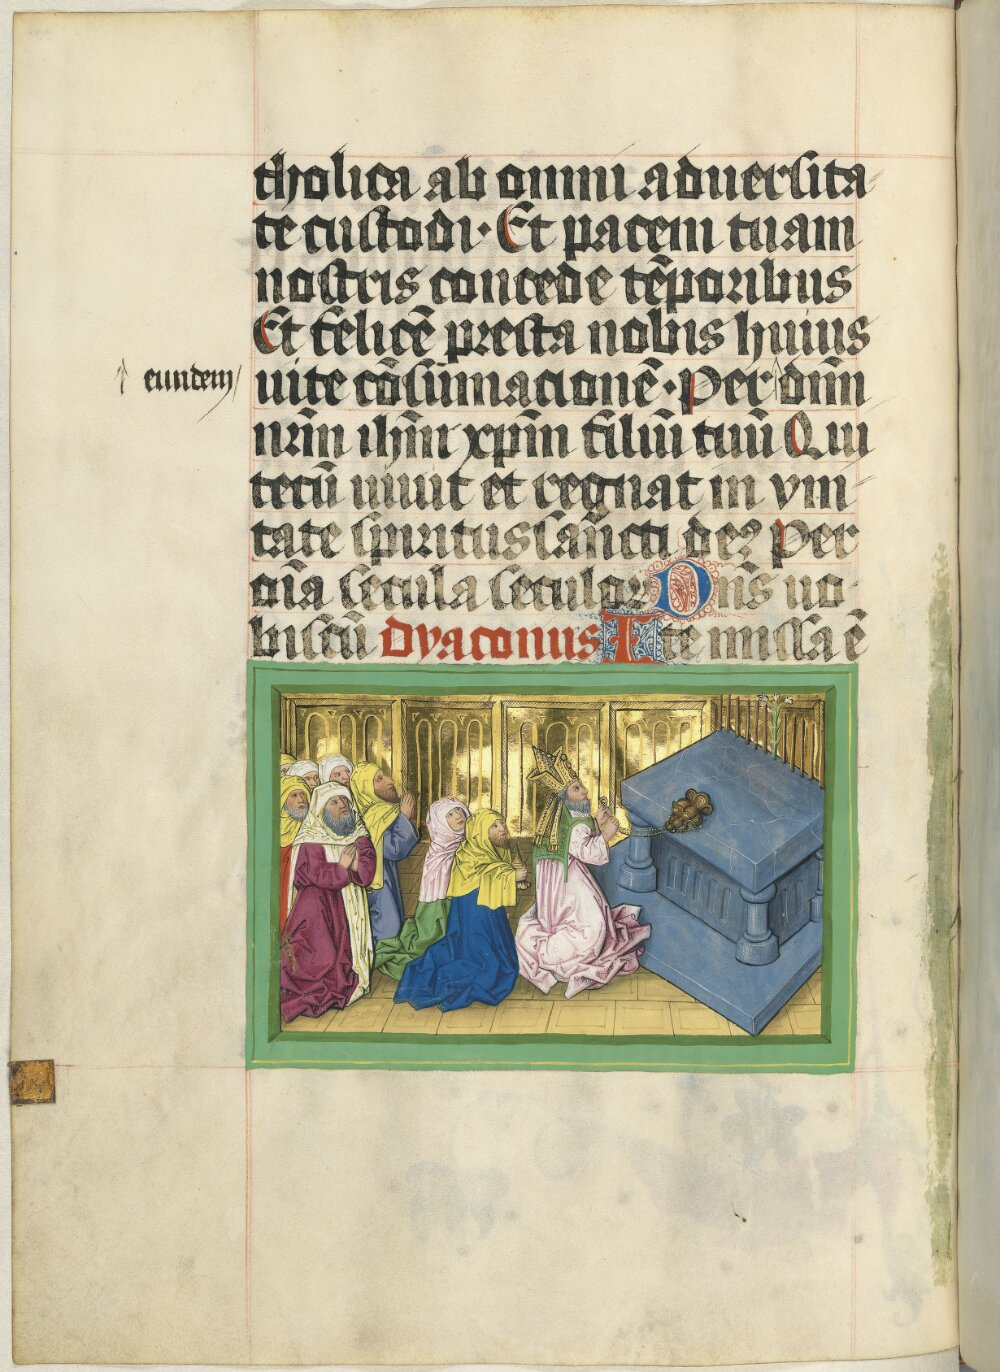 tholica ab omni aduersita
te custodi· Et pacem tuam
nostris concede te̅poribus
Et felice̅ presta nobis huius
eundem
uite co̅sumacione̅· Per dm̅
nr̅m ih̅m xp̅m filiu̅ tuu̅ Qui
tecu̅ uiuit et regnat in vni
tate spiritussancti deꝫ Per
oi̅a secula seculoꝝ Dn̅s uo-
biscu̅ Dyaconus Ite missa e̅